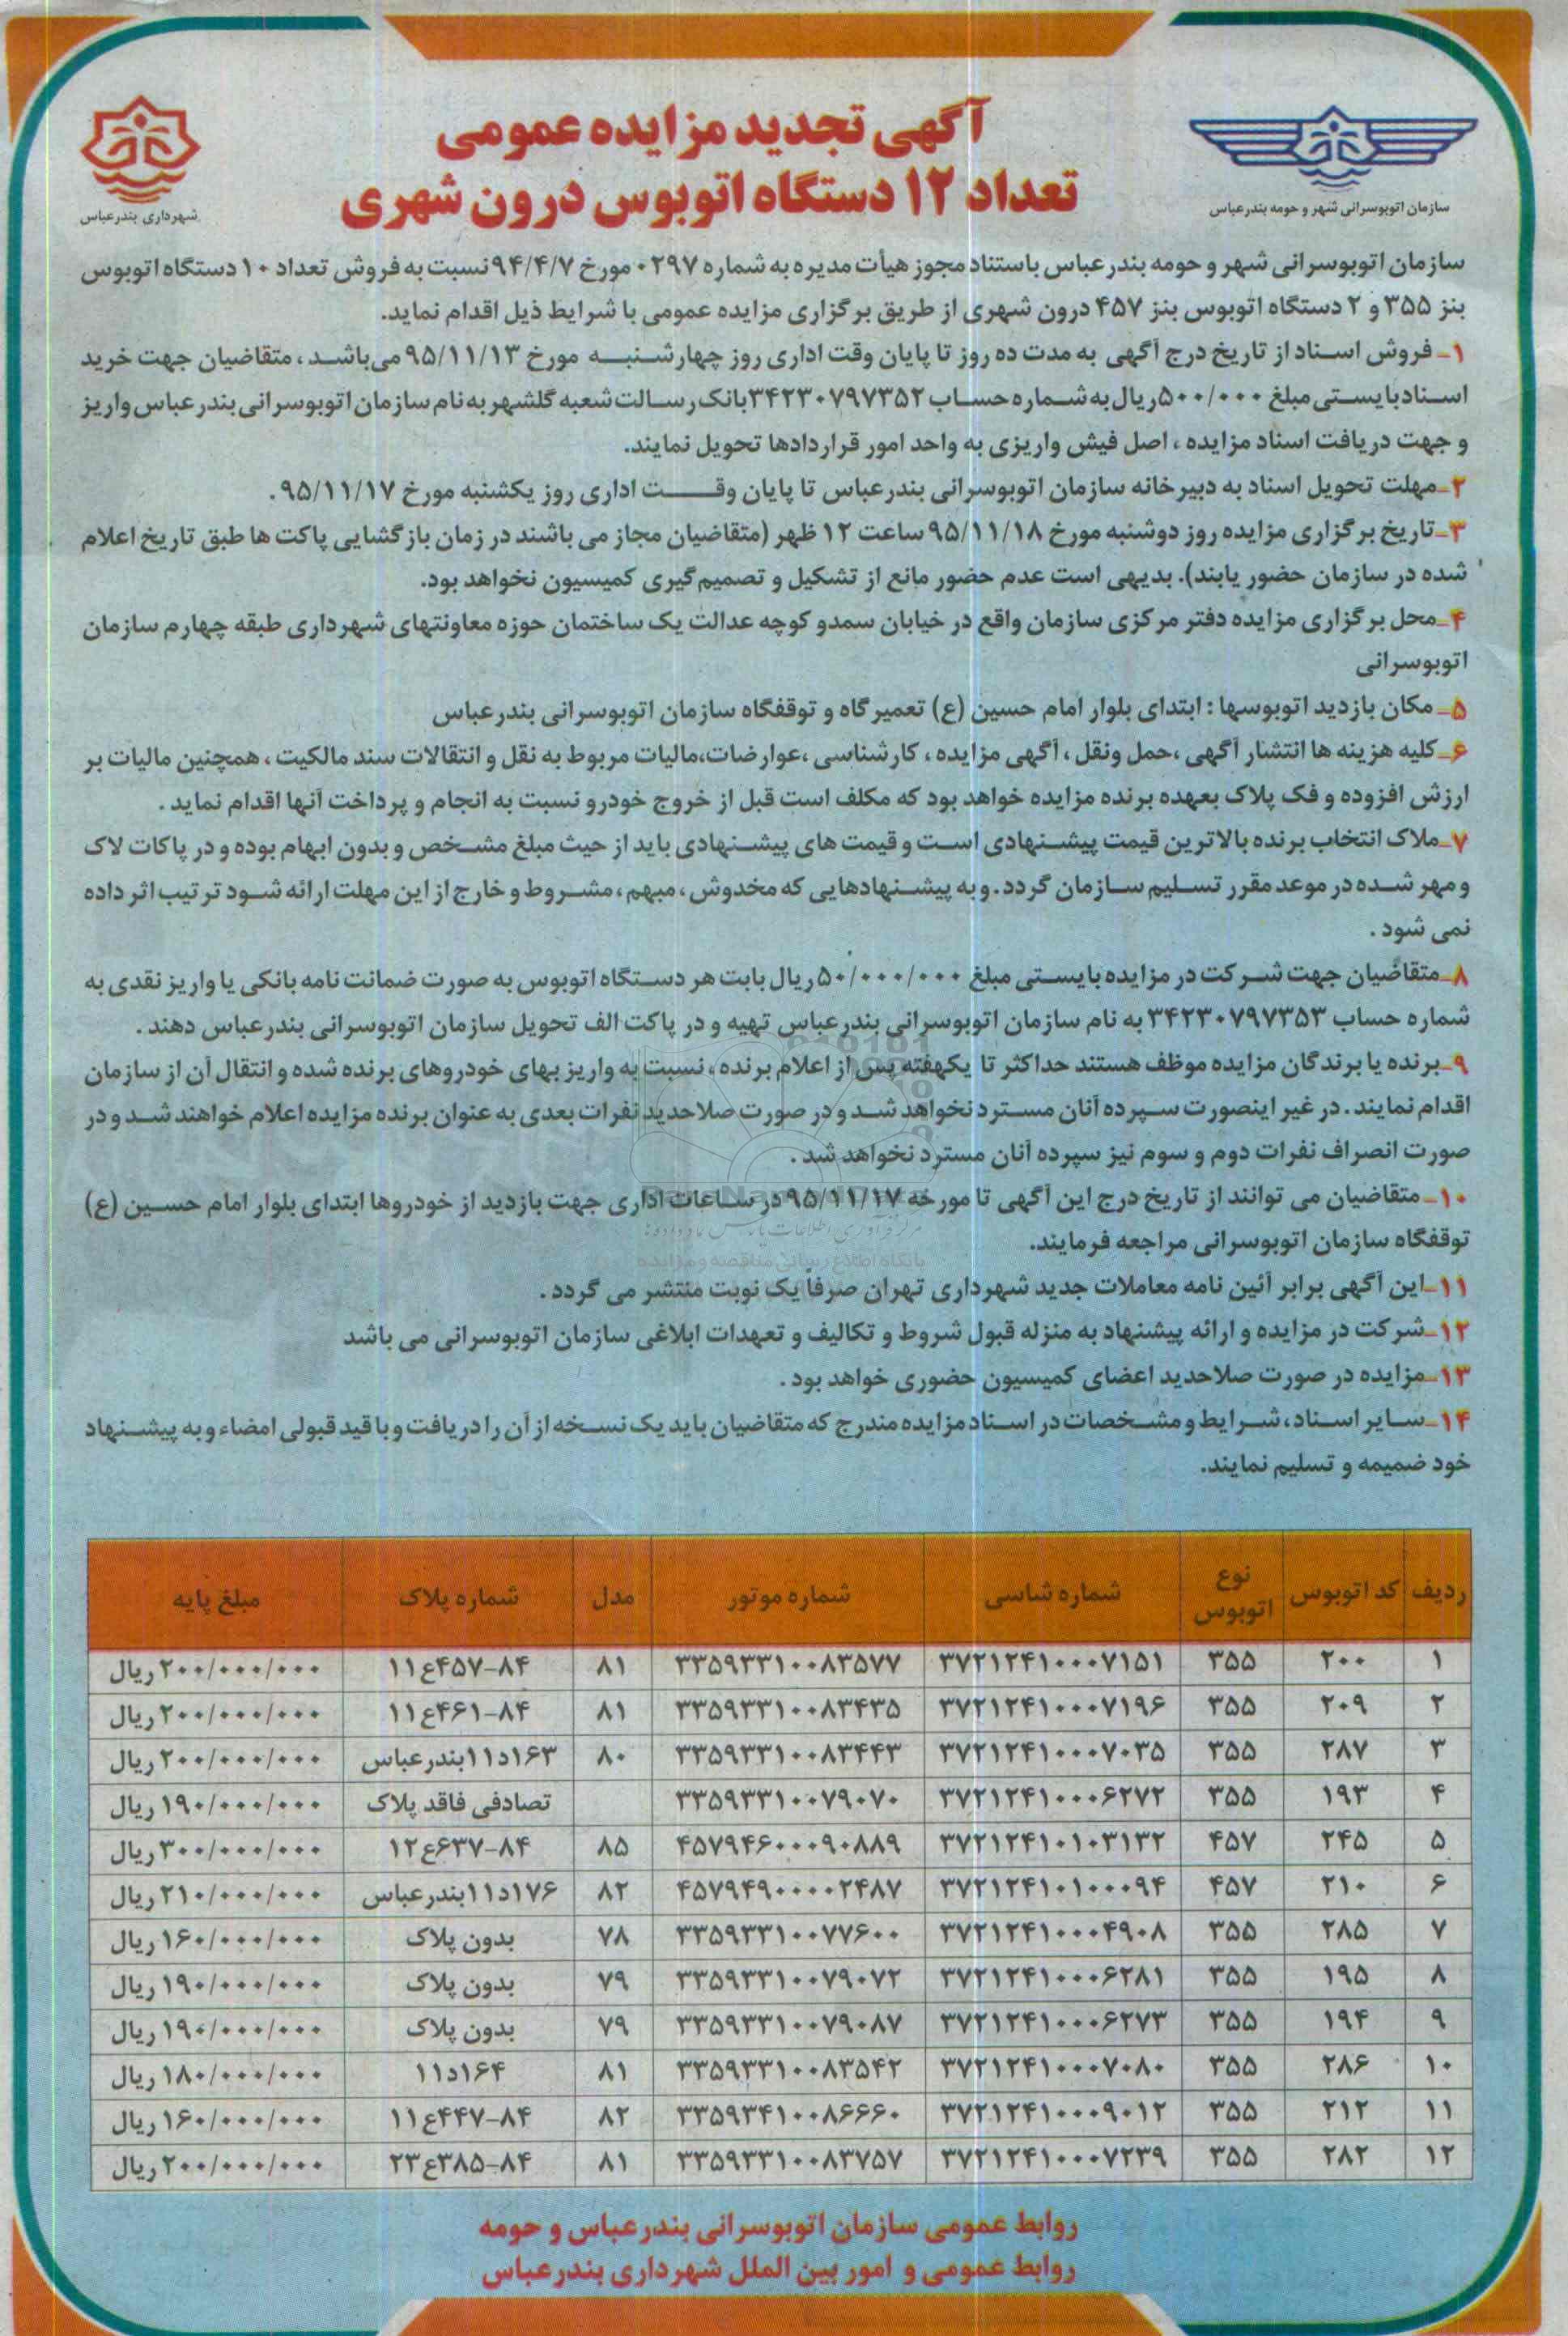 آگهی تجدید مزایده عمومی
تعداد ۱۲ دستگاه اتوبوس درون شهری
سازمان اتوبوسرانی شهر و حومه بندرعباس
شهرداری بندرعباس
سازمان اتوبوسرانی شهر و حومه بندرعباس باستناد مجوز هیأت مدیره به شماره ۰۲۹۷ مورخ ۹۴/۴/۷ نسبت به فروش تعداد ۱۰ دستگاه اتوبوس
بنز ۳۵۵ و ۲ دستگاه اتوبوس بنز ۴۵۷ درون شهری از طریق برگزاری مزایده عمومی با شرایط ذیل اقدام نماید.
۱_ فروش اسناد از تاریخ درج آگهی به مدت ده روز تا پایان وقت اداری روز چهارشنبه مورخ ۹۵/۱۱/۱۳ می‌باشد ، متقاضیان جهت خرید
اسناد بایستی مبلغ ۵۰۰/۰۰۰ ریال به شماره حساب ۳۴۲۳۰۷۹۷۳۵۲ بانک رسالت شعبه گلشهر به نام سازمان اتوبوسرانی بندرعباس واریز
و جهت دریافت اسناد مزایده ، اصل فیش واریزی به واحد امور قراردادها تحویل نمایند.
۲_مهلت تحویل اسناد به دبیرخانه سازمان اتوبوسرانی بندرعباس تا پایان وقت اداری روز یکشنبه مورخ ۹۵/۱۱/۱۷ .
۳_تاریخ برگزاری مزایده روز دوشنبه مورخ ۹۵/۱۱/۱۸ ساعت ۱۲ ظهر (متقاضیان مجاز می باشند در زمان بازگشایی پاکت ها طبق تاریخ اعلام
شده در سازمان حضور یابند). بدیهی است عدم حضور مانع از تشکیل و تصمیم گیری کمیسیون نخواهد بود.
۴_محل برگزاری مزایده دفتر مرکزی سازمان واقع در خیابان سمدو کوچه عدالت یک ساختمان حوزه معاونتهای شهرداری طبقه چهارم سازمان
اتوبوسرانی
۵_ مکان بازدید اتوبوسها : ابتدای بلوار امام حسین (ع) تعمیرگاه و توقفگاه سازمان اتوبوسرانی بندرعباس
۶_کلیه هزینه ها انتشار آگهی ،حمل ونقل ، آگهی مزایده ، کارشناسی ،عوارضات،مالیات مربوط به نقل و انتقالات سند مالکیت ، همچنین مالیات بر
ارزش افزوده و فک پلاک بعهده برنده مزایده خواهد بود که مکلف است قبل از خروج خودرو نسبت به انجام و پرداخت آنها اقدام نماید .
۷_ملاک انتخاب برنده بالاترین قیمت پیشنهادی است و قیمت های پیشنهادی باید از حیث مبلغ مشخص و بدون ابهام بوده و در پاکات لاک
و مهر شده در موعد مقرر تسلیم سازمان گردد . و به پیشنهادهایی که مخدوش ، مبهم ، مشروط و خارج از این مهلت ارائه شود ترتیب اثر داده
نمی شود .
۸_متقاضیان جهت شرکت در مزایده بایستی مبلغ ۵۰/۰۰۰/۰۰۰ ریال بابت هر دستگاه اتوبوس به صورت ضمانت نامه بانکی یا واریز نقدی به
شماره حساب ۳۴۲۳۰۷۹۷۳۵۳ به نام سازمان اتوبوسرانی بندرعباس تهیه و در پاکت الف تحویل سازمان اتوبوسرانی بندرعباس دهند .
۹_برنده یا برندگان مزایده موظف هستند حداکثر تا یکهفته پس از اعلام برنده ، نسبت به واریز بهای خودروهای برنده شده و انتقال آن از سازمان
اقدام نمایند . در غیر اینصورت سپرده آنان مسترد نخواهد شد و در صورت صلاحدید نفرات بعدی به عنوان برنده مزایده اعلام خواهند شد و در
صورت انصراف نفرات دوم و سوم نیز سپرده آنان مسترد نخواهد شد .
۱۰_ متقاضیان می توانند از تاریخ درج این آگهی تا مورخه ۹۵/۱۱/۱۷ در ساعات اداری جهت بازدید از خودروها ابتدای بلوار امام حسین (ع)
توقفگاه سازمان اتوبوسرانی مراجعه فرمایند.
۱۱_این آگهی برابر آئین نامه معاملات جدید شهرداری تهران صرفاً یک نوبت منتشر می گردد .
۱۲_شرکت در مزایده و ارائه پیشنهاد به منزله قبول شروط و تکالیف و تعهدات ابلاغی سازمان اتوبوسرانی می باشد
۱۳_مزایده در صورت صلاحدید اعضای کمیسیون حضوری خواهد بود .
۱۴_سایر اسناد ، شرایط و مشخصات در اسناد مزایده مندرج که متقاضیان باید یک نسخه از آن را دریافت و با قید قبولی امضاء و به پیشنهاد
خود ضمیمه و تسلیم نمایند.
ردیف کد اتوبوس نوع اتوبوس شماره شاسی شماره موتور مدل شماره پلاک مبلغ پایه
۱ ۲۰۰ ۳۵۵ ۳۷۲۱۲۴۱۰۰۰۷۱۵۱ ۳۳۵۹۳۳۱۰۰۸۳۵۷۷ ۸۱ ۸۴-۴۵۷ع۱۱ ۲۰۰/۰۰۰/۰۰۰ ریال
۲ ۲۰۹ ۳۵۵ ۳۷۲۱۲۴۱۰۰۰۷۱۹۶ ۳۳۵۹۳۳۱۰۰۸۳۴۳۵ ۸۱ ۸۴-۴۶۱ع۱۱ ۲۰۰/۰۰۰/۰۰۰ ریال
۳ ۲۸۷ ۳۵۵ ۳۷۲۱۲۴۱۰۰۰۷۰۳۵ ۳۳۵۹۳۳۱۰۰۸۳۴۴۳ ۸۰ ۱۶۳د۱۱بندرعباس ۲۰۰/۰۰۰/۰۰۰ ریال
۴ ۱۹۳ ۳۵۵ ۳۷۲۱۲۴۱۰۰۰۶۲۷۲ ۳۳۵۹۳۳۱۰۰۷۹۰۷۰ تصادفی فاقد پلاک ۱۹۰/۰۰۰/۰۰۰ ریال
۵ ۲۴۵ ۴۵۷ ۳۷۲۱۲۴۱۰۱۰۳۱۳۲ ۴۵۷۹۴۶۰۰۰۹۰۸۸۹ ۸۵ ۸۴-۶۳۷ع۱۲ ۳۰۰/۰۰۰/۰۰۰ ریال
۶ ۲۱۰ ۴۵۷ ۳۷۲۱۲۴۱۰۱۰۰۰۹۴ ۴۵۷۹۴۹۰۰۰۰۲۴۸۷ ۸۲ ۱۷۶د۱۱بندرعباس ۲۱۰/۰۰۰/۰۰۰ ریال
۷ ۲۸۵ ۳۵۵ ۳۷۲۱۲۴۱۰۰۰۴۹۰۸ ۳۳۵۹۳۳۱۰۰۷۷۶۰۰ ۷۸ بدون پلاک ۱۶۰/۰۰۰/۰۰۰ ریال
۸ ۱۹۵ ۳۵۵ ۳۷۲۱۲۴۱۰۰۰۶۲۸۱ ۳۳۵۹۳۳۱۰۰۷۹۰۷۲ ۷۹ بدون پلاک ۱۹۰/۰۰۰/۰۰۰ ریال
۹ ۱۹۴ ۳۵۵ ۳۷۲۱۲۴۱۰۰۰۶۲۷۳ ۳۳۵۹۳۳۱۰۰۷۹۰۸۷ ۷۹ بدون پلاک ۱۹۰/۰۰۰/۰۰۰ ریال
۱۰ ۲۸۶ ۳۵۵ ۳۷۲۱۲۴۱۰۰۰۷۰۸۰ ۳۳۵۹۳۳۱۰۰۸۳۵۴۲ ۸۱ ۱۶۴د۱۱ ۱۸۰/۰۰۰/۰۰۰ ریال
۱۱ ۲۱۲ ۳۵۵ ۳۷۲۱۲۴۱۰۰۰۹۰۱۲ ۳۳۵۹۳۴۱۰۰۸۶۶۶۰ ۸۲ ۸۴-۴۴۷ع۱۱ ۱۶۰/۰۰۰/۰۰۰ ریال
۱۲ ۲۸۲ ۳۵۵ ۳۷۲۱۲۴۱۰۰۰۷۲۳۹ ۳۳۵۹۳۳۱۰۰۸۳۷۵۷ ۸۱ ۸۴-۳۸۵ع۲۳ ۲۰۰/۰۰۰/۰۰۰ ریال
روابط عمومی سازمان اتوبوسرانی بندرعباس و حومه
روابط عمومی و امور بین الملل شهرداری بندرعباس